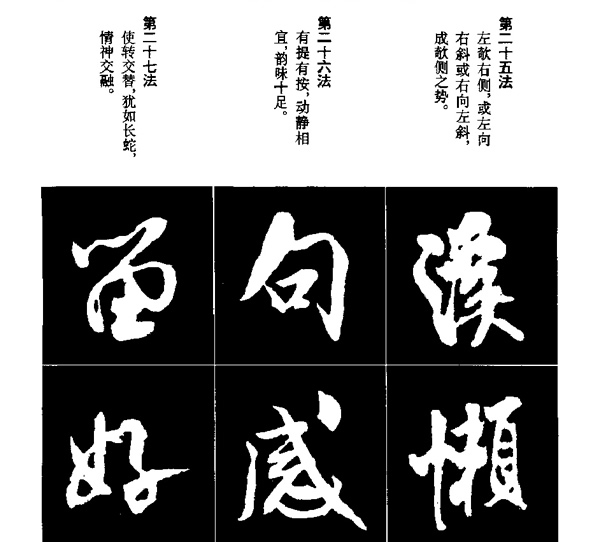 第二十五法
左欹右侧,或左向
右斜或右向左斜,
成欹侧之势。
懶
第二十六法
有提有按,动静相
宜,韵味十足。
句
感
第二十七法
使转交替,犹如长蛇,
情神交融。
留
好